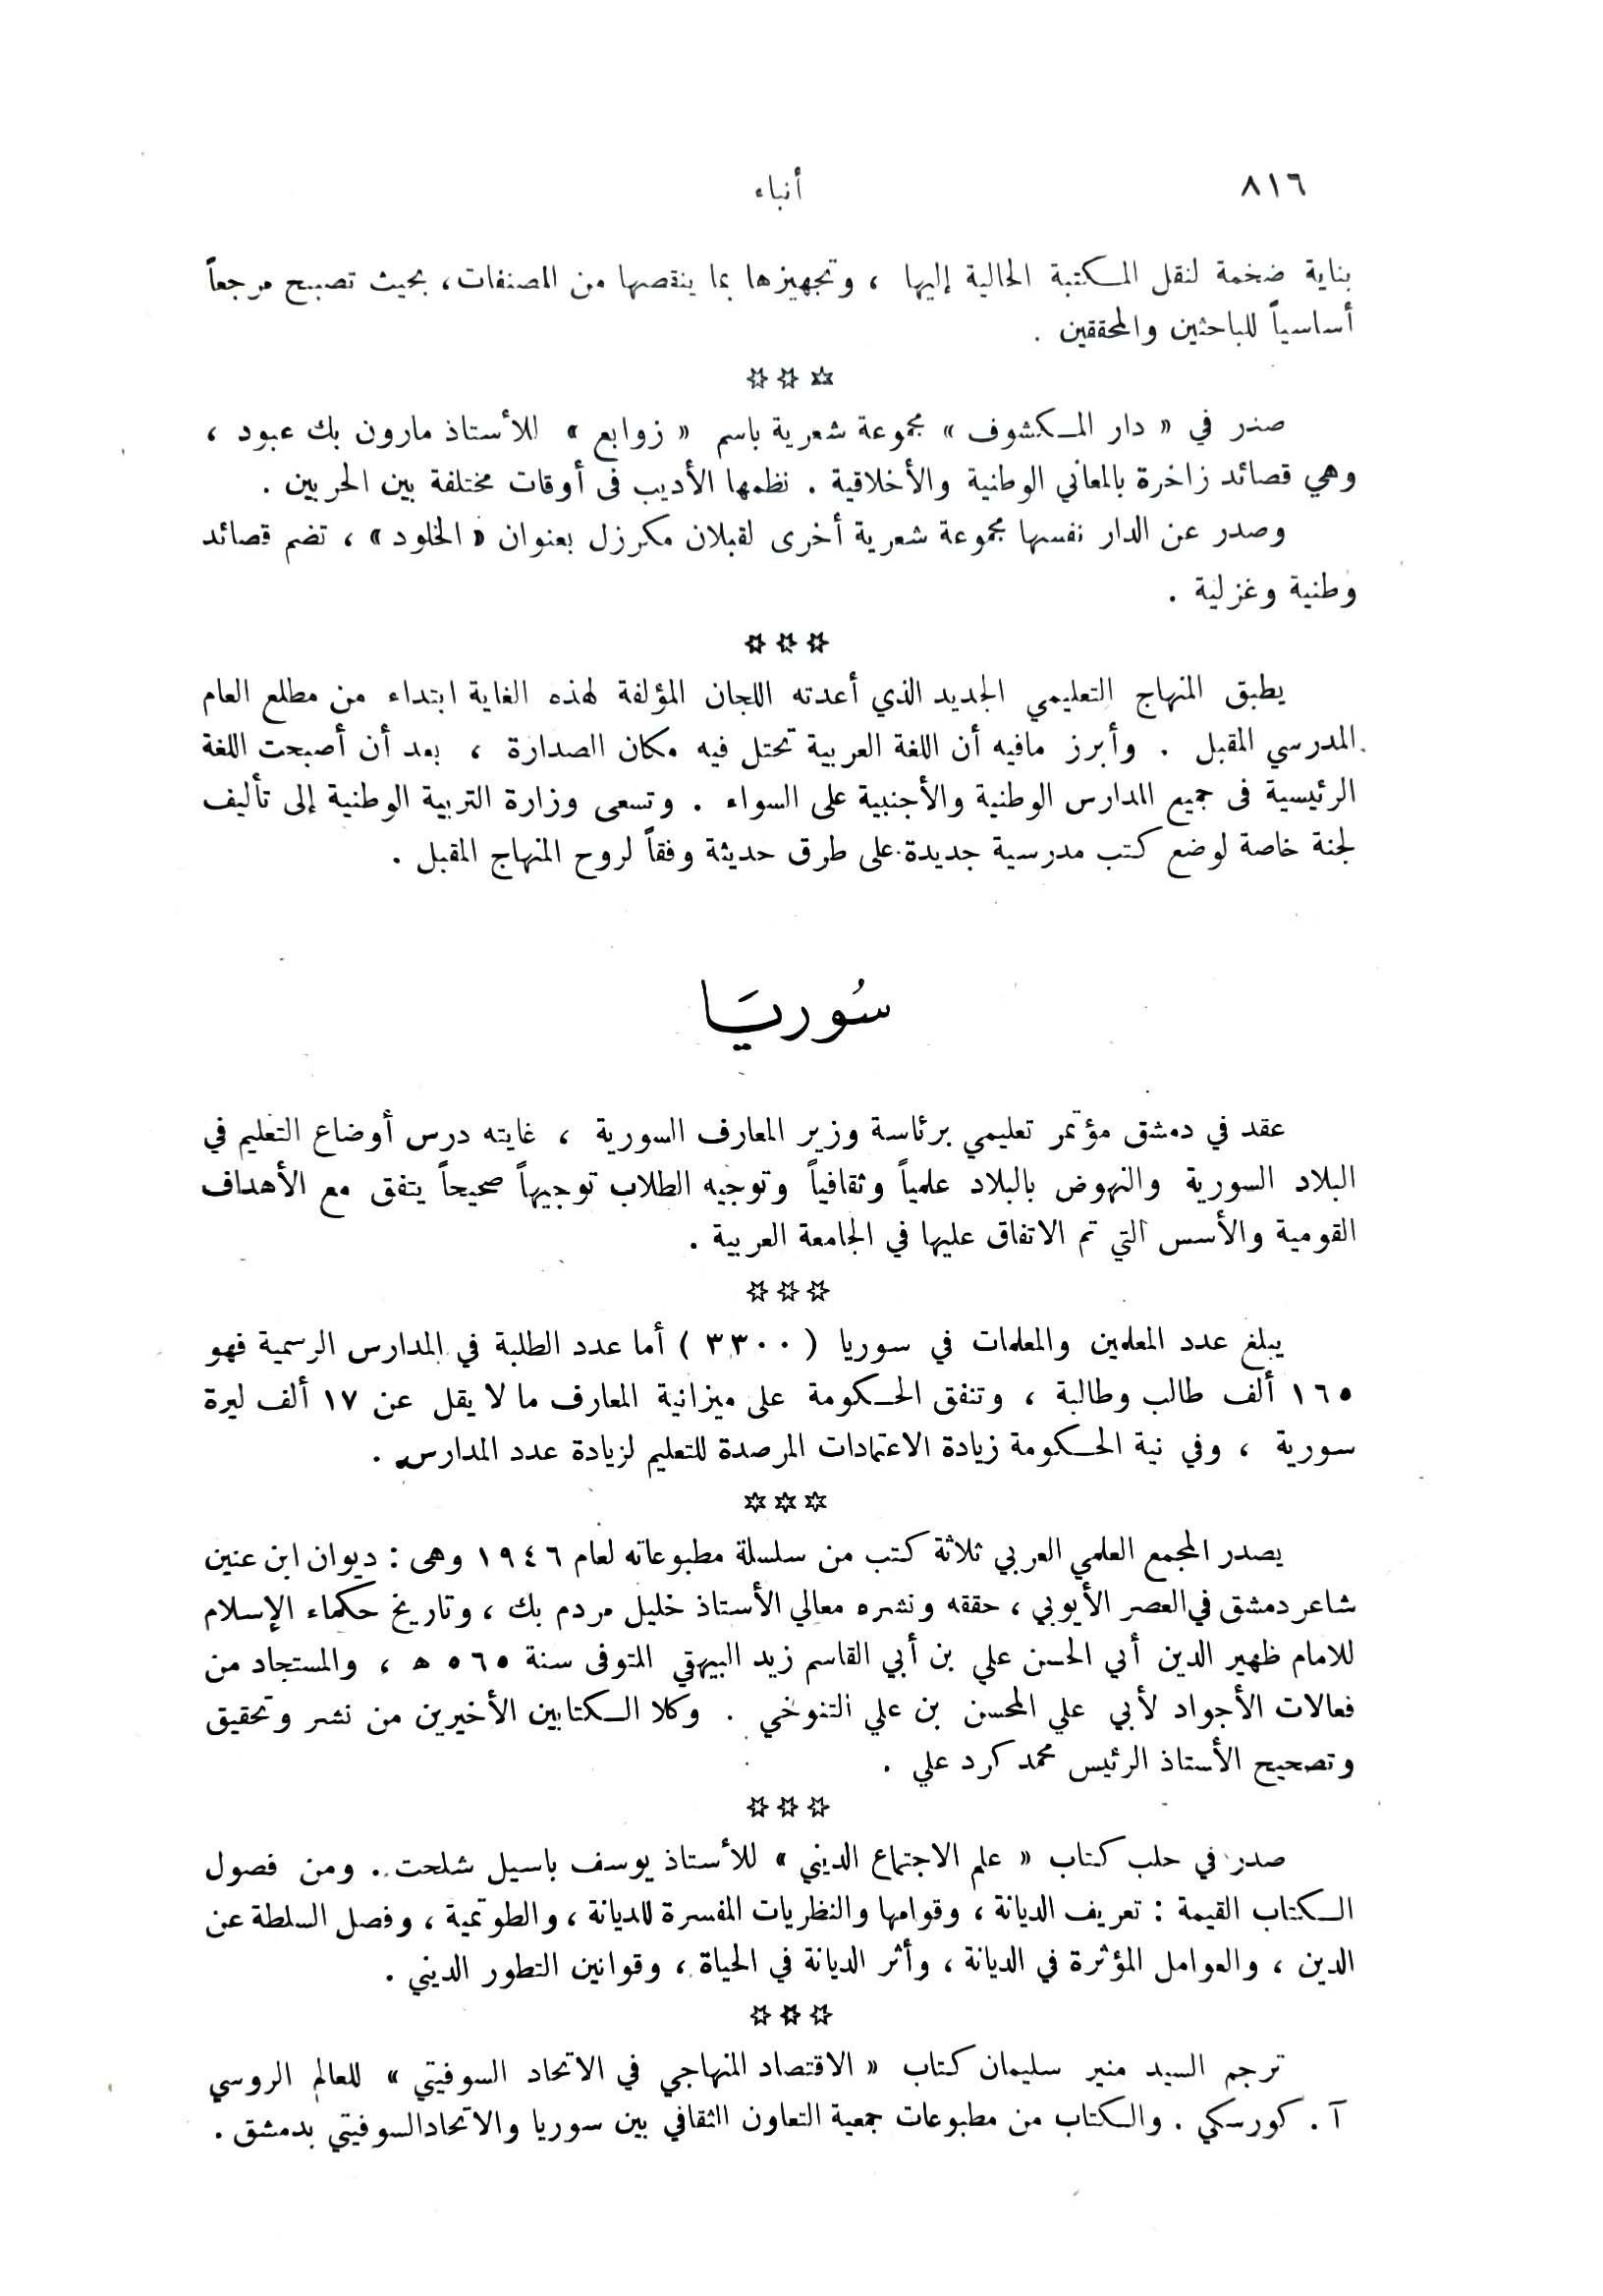 ٨١٦ أنباء
بناية ضخمة لنقل المكتبة الحالية إليها ، وتجهيزها بما ينقصها من المصنفات ، بحيث تصبح مرجعاً
أساسياً للباحثين والمحققين .
☆☆☆
صدر في « دار المكشوف » مجموعة شعرية باسم « زوابع » للأستاذ مارون بك عبود ،
وهي قصائد زاخرة بالمعاني الوطنية والأخلاقية . نظمها الأديب فى أوقات مختلفة بين الحربين .
وصدر عن الدار نفسها مجموعة شعرية أخرى لقبلان مكرزل بعنوان « الخلود » ، تضم قصائد
وطنية وغزلية .
☆☆☆
يطبق المنهاج التعليمي الجديد الذي أعدته اللجان المؤلفة لهذه الغاية ابتداء من مطلع العام
المدرسي المقبل . وأبرز مافيه أن اللغة العربية تحتل فيه مكان الصدارة ، بعد أن أصبحت اللغة
الرئيسية فى جميع المدارس الوطنية والأجنبية على السواء . وتسعى وزارة التربية الوطنية إلى تأليف
لجنة خاصة لوضع كتب مدرسية جديدة على طرق حديثة وفقاً لروح المنهاج المقبل .
سُوريَا
عقد في دمشق مؤتمر تعليمي برئاسة وزير المعارف السورية ، غايته درس أوضاع التعليم في
البلاد السورية والنهوض بالبلاد علمياً وثقافياً وتوجيه الطلاب توجيهاً صحيحاً يتفق مع الأهداف
القومية والأسس التي تم الاتفاق عليها في الجامعة العربية .
☆☆☆
يبلغ عدد المعلمين والمعلمات في سوريا ( ٣٣٠٠ ) أما عدد الطلبة في المدارس الرسمية فهو
١٦٥ ألف طالب وطالبة ، وتنفق الحكومة على ميزانية المعارف ما لا يقل عن ١٧ ألف ليرة
سورية ، وفي نية الحكومة زيادة الاعتمادات المرصدة للتعليم لزيادة عدد المدارس .
☆☆☆
يصدر المجمع العلمي العربي ثلاثة كتب من سلسلة مطبوعاته لعام ١٩٤٦ وهى : ديوان ابن عنين
شاعر دمشق في العصر الأيوبي ، حققه ونشره معالي الأستاذ خليل مردم بك ، وتاريخ حكماء الإسلام
للامام ظهير الدين أبي الحسن علي بن أبي القاسم زيد البيهقي المتوفى سنة ٥٦٥ هـ ، والمستجاد من
فعالات الأجواد لأبي علي المحسن بن علي التنوخي . وكلا الكتابين الأخيرين من نشر وتحقيق
وتصحيح الأستاذ الرئيس محمد كرد علي .
☆☆☆
صدر في حلب كتاب « علم الاجتماع الديني » للأستاذ يوسف باسيل شلحت . ومن فصول
الكتاب القيمة : تعريف الديانة ، وقوامها والنظريات المفسرة للديانة ، والطوتمية ، وفصل السلطة عن
الدين ، والعوامل المؤثرة في الديانة ، وأثر الديانة في الحياة ، وقوانين التطور الديني .
☆☆☆
ترجم السيد منير سليمان كتاب « الاقتصاد المنهاجي في الاتحاد السوفيتي » للعالم الروسي
آ . كورسكي . والكتاب من مطبوعات جمعية التعاون الثقافي بين سوريا والاتحاد السوفيتي بدمشق .